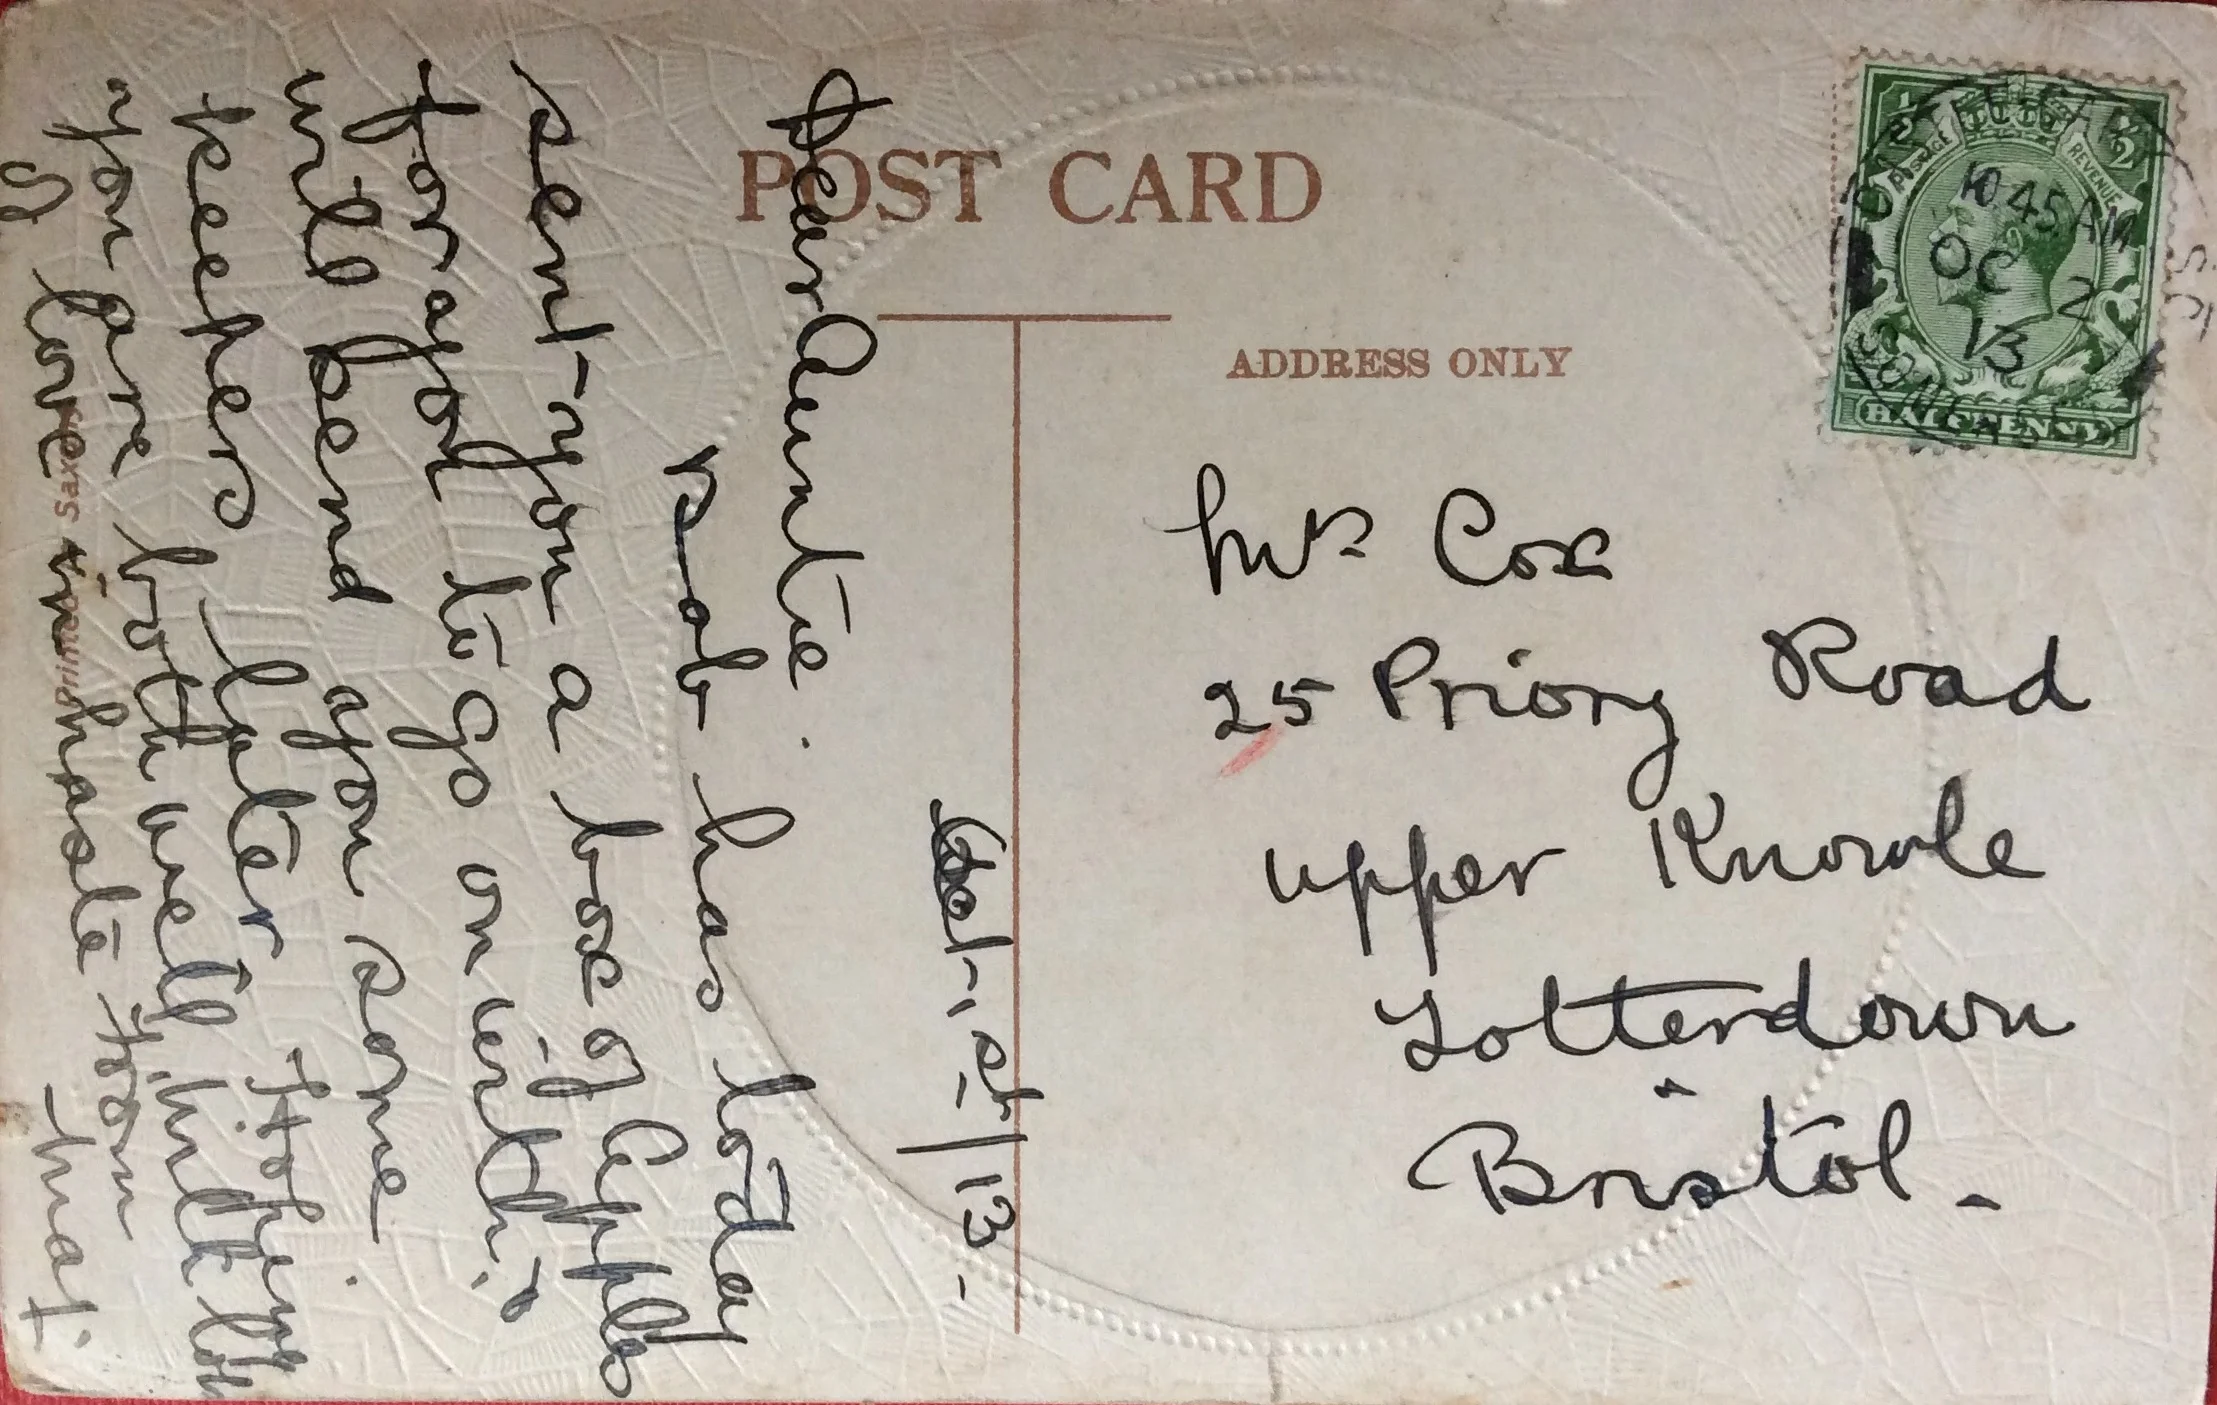 POST CARD
ADDRESS ONLY
1/2 1/2
POSTAGE REVENUE
HALFPENNY
10 45 AM
OC 2
13
Mrs Cox
25 Priory Road
upper Knowle
Totterdown
Bristol.
Oct. 1st/13.
Dear Auntie.
Rob has today
sent you a box of Apples
for you to go on with
will send you some
keepers later Hoping
you are both well, with
love in haste from
Mat.
Printed Saxony